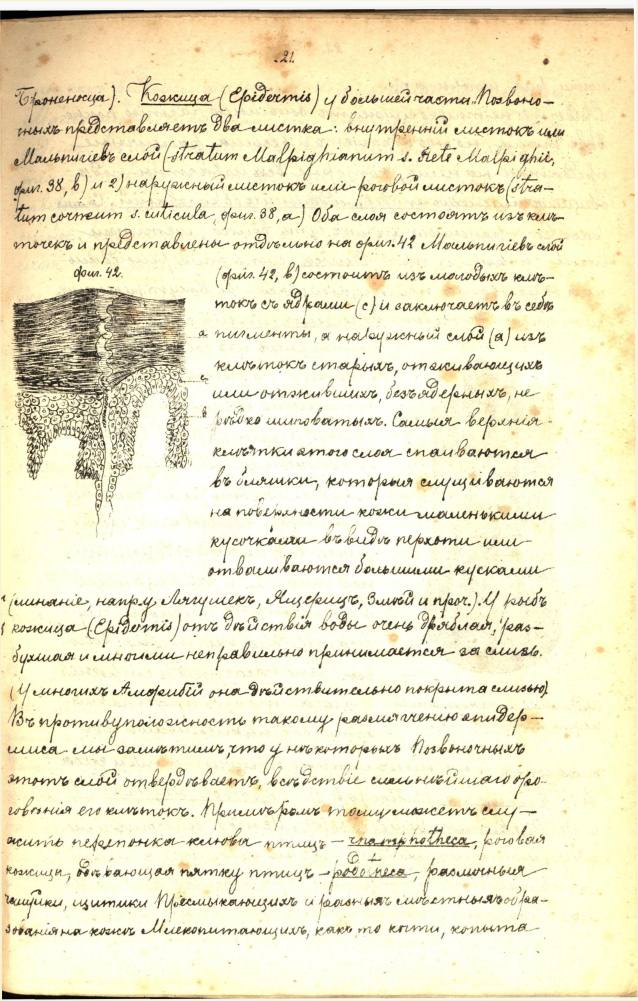 21.
Броненосца). Кожица (Epidermis) у большей части Позвоно-
чныхъ представляетъ два листка: внутренній листокъ или
Мальпигіевъ слой (stratum Malpighianum s. Rete Malpighii,
фиг. 38, b) и 2) наружный листокъ или роговой листокъ (stra-
tum corneum s. cuticula, фиг. 38, a) Оба слоя состоятъ изъ клѣ-
точекъ и представлены отдѣльно на фиг. 42 Мальпигіевъ слой
фиг. 42.
(фиг. 42, b) состоитъ изъ молодыхъ клѣ-
токъ съ ядрами (c) и заключаетъ въ себѣ
a
пигменты, а наружный слой (a) изъ
клѣтокъ старыхъ, отживающихъ
c
или отжившихъ, безъядерныхъ, не
b
рѣдко шиповатыхъ. Самыя верхнія
клѣтки этого слоя спаиваются
въ бляшки, которыя слущиваются
на поверхности кожи маленькими
кусочками въ видѣ перхоти или
отваливаются большими кусками
(линяніе, напр у Лягушекъ, Ящерицъ, Змѣй и проч.). У рыбъ
кожица (Epidermis) отъ дѣйствія воды очень дряблая, раз-
бухшая и многими неправильно принимается за слизь.
(У многихъ Амфибій она дѣйствительно покрыта слизью)
Въ противуположность такому размягченію эпидер-
миса мы замѣтимъ, что у нѣкоторыхъ Позвоночныхъ
этотъ слой отвердѣваетъ, вслѣдствіе сильнѣйшаго оро-
говѣнія его клѣтокъ. Примѣромъ тому можетъ слу-
жить перепонка клюва птицъ – rhamphotheca, роговая
кожица, одѣвающая пятку птицъ – podotheca, различныя
чешуйки, щитики Пресмыкающихъ и разныя мѣстныя обра-
зованія на кожѣ Млекопитающихъ, какъ то когти, копыта